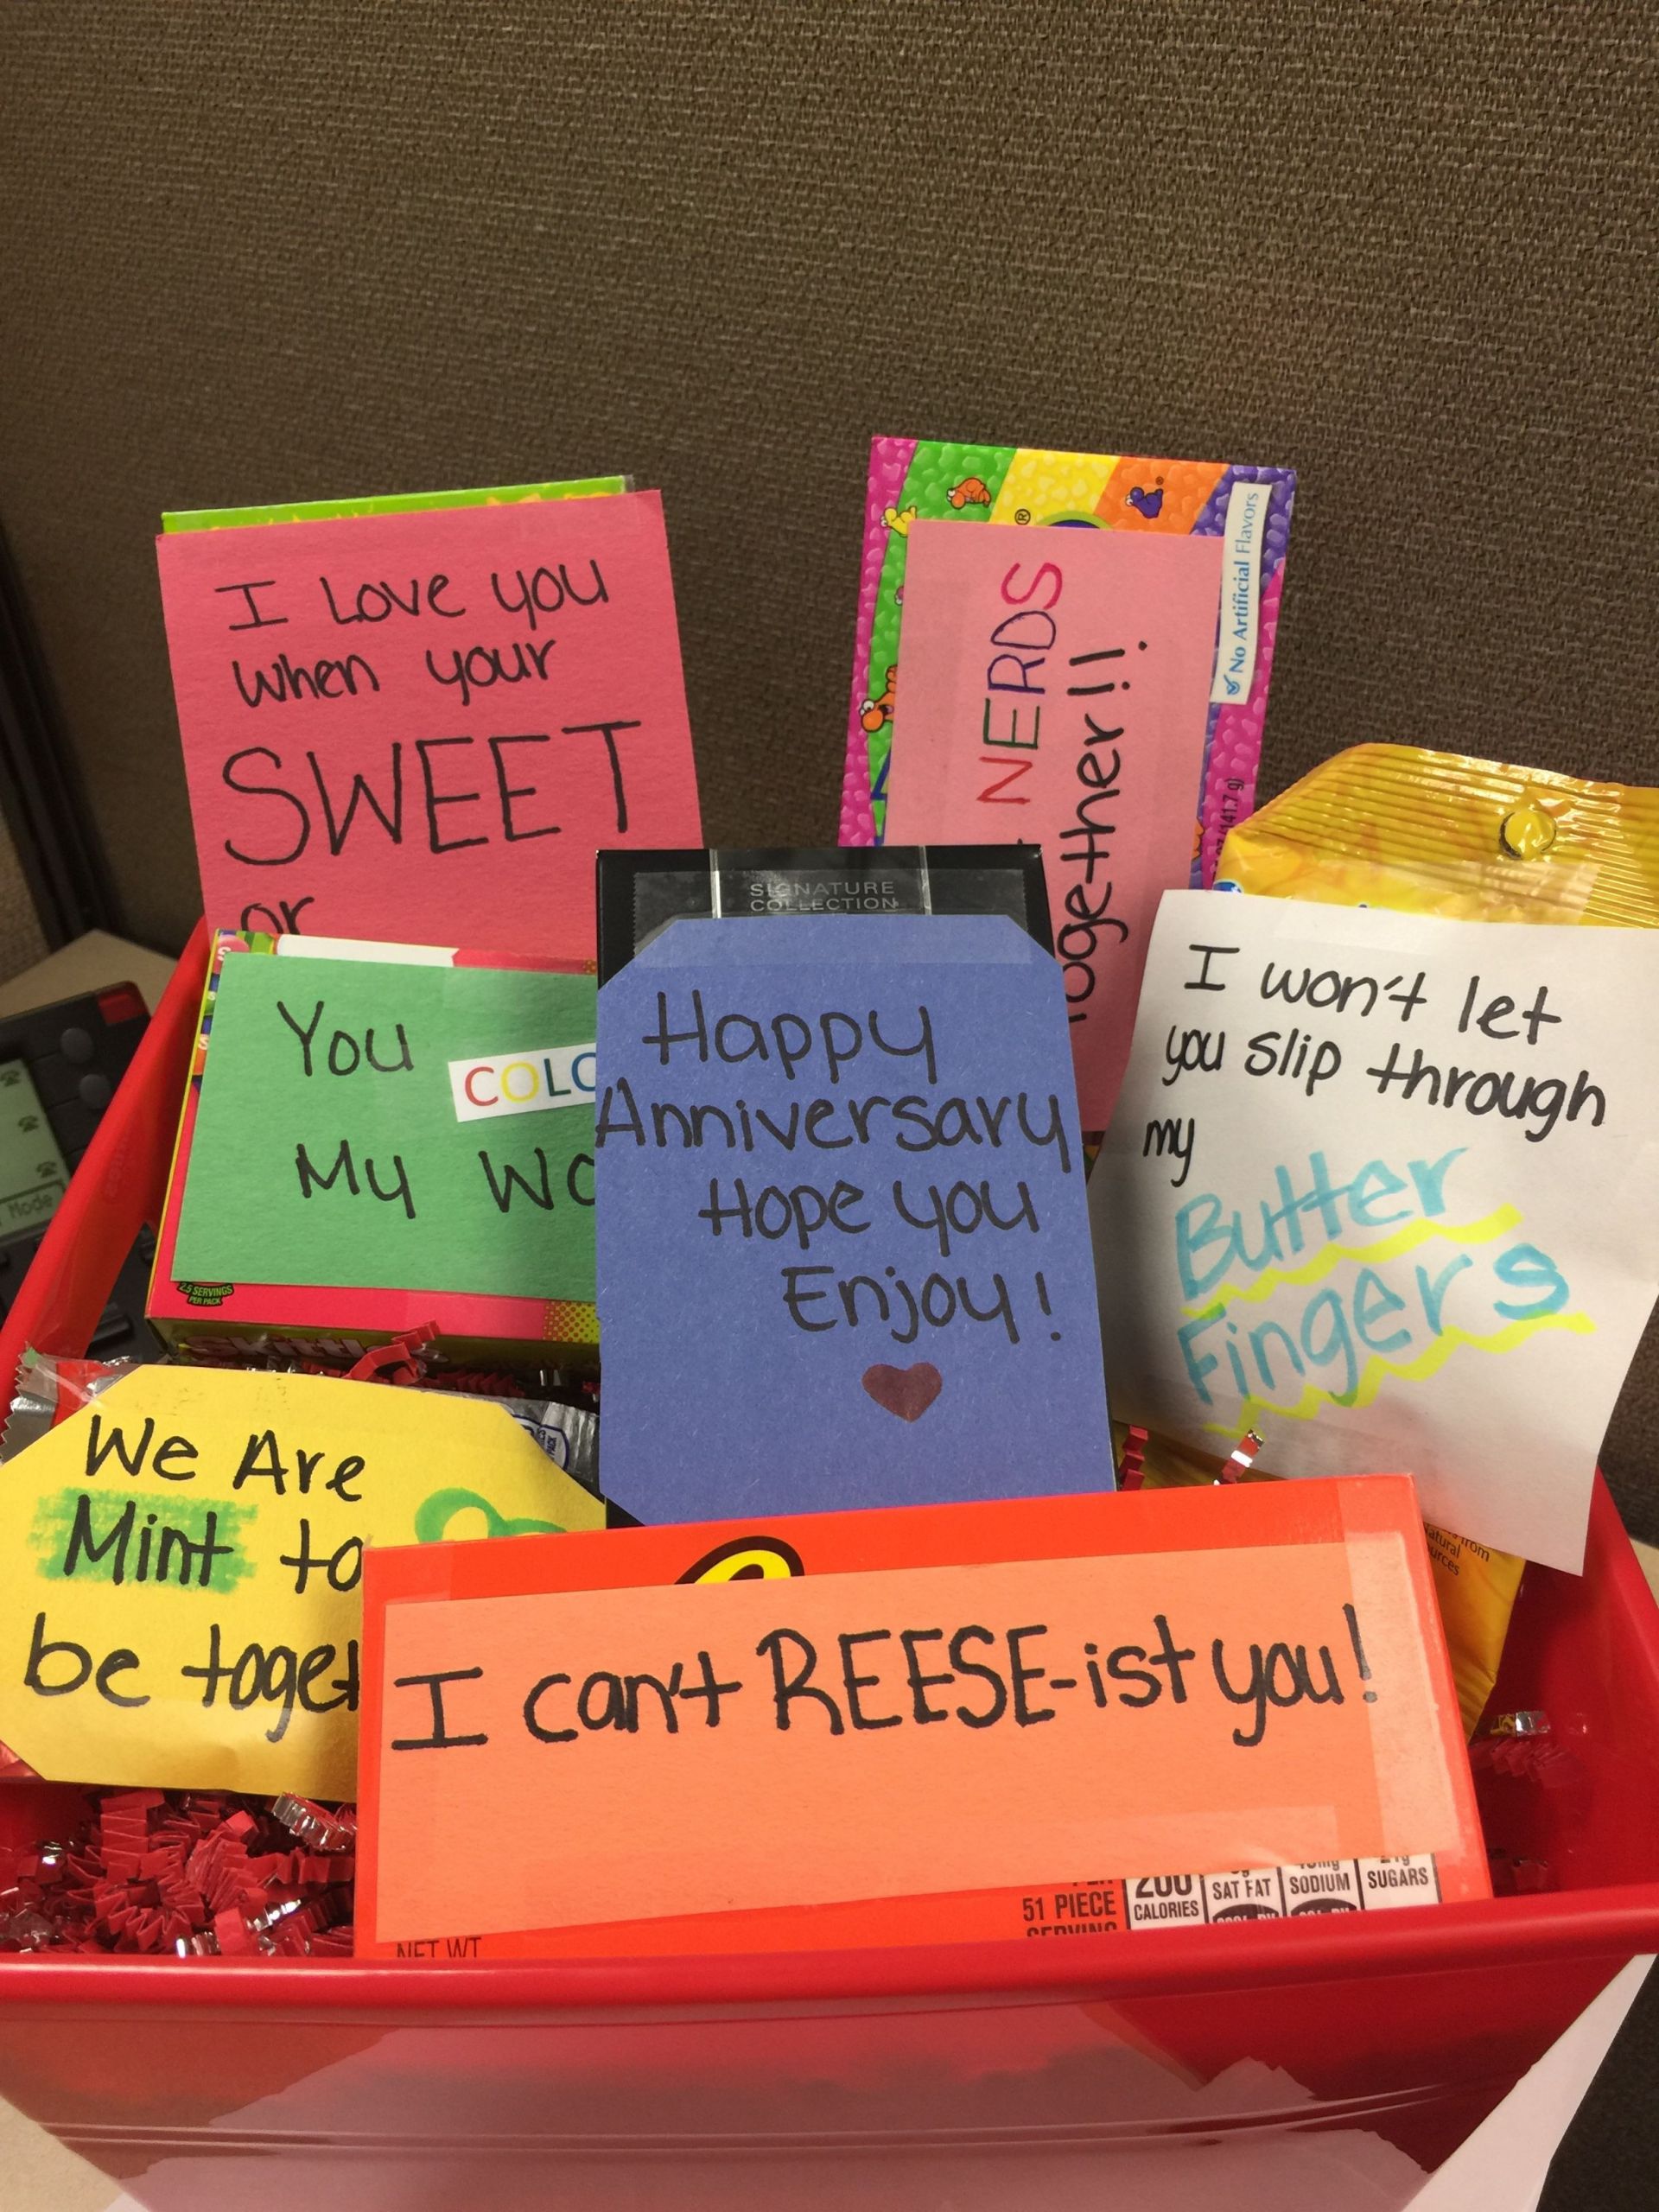 I Love you
when your
SWEET
or
NERDS
together!!
No Artificial Flavors
(141.7 g)
SIGNATURE
COLLECTION
You COLO
My WO
2.5 SERVINGS
PER PACK
Happy
Anniversary
Hope you
Enjoy!
I won't let
you slip through
my
Butter
Fingers
We Are
Mint to
be toget
I can't REESE-ist you!
51 PIECE
SERVING
200
CALORIES
SAT FAT
SODIUM
SUGARS
NET WT
Mode